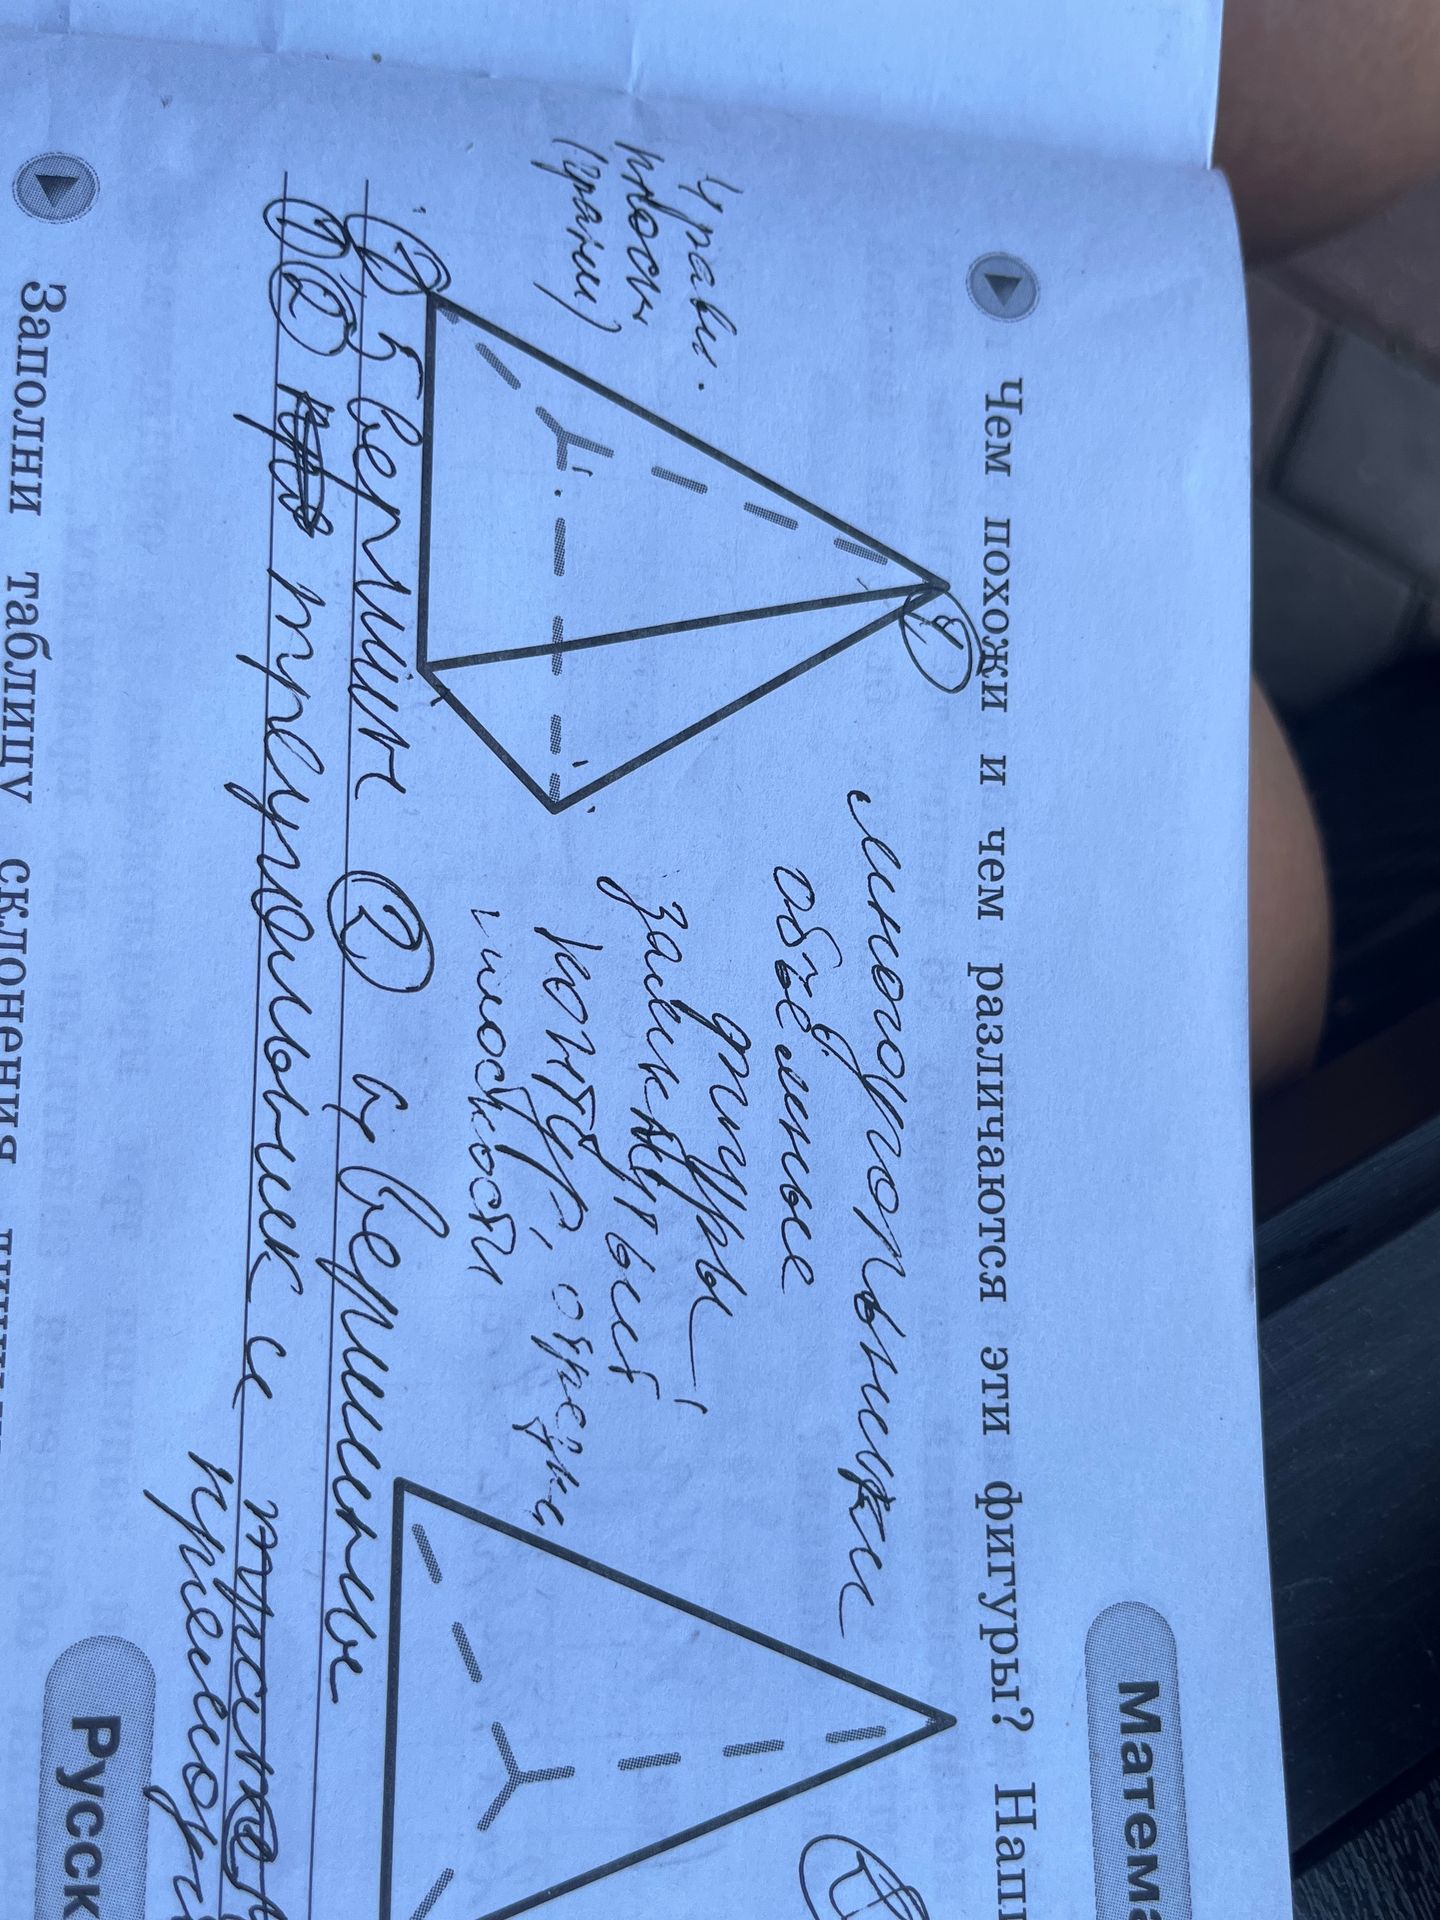 Матема
Чем похожи и чем различаются эти фигуры? Нап
многоугольники
объёмные
фигуры
замкнутый
контур, отрезки
плоскости
(грани)
① 5 вершин ② 4 вершины
①② треугольник с
Русск
Заполни таблицу склонения